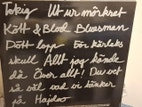 Tokig Ut ur mörkret
Kött & Blod Bluesman
Dött lopp För kärleks
skull Allt jag kände
då Över allt! Du vet
så väl vad vi tänker
på Hajdeo